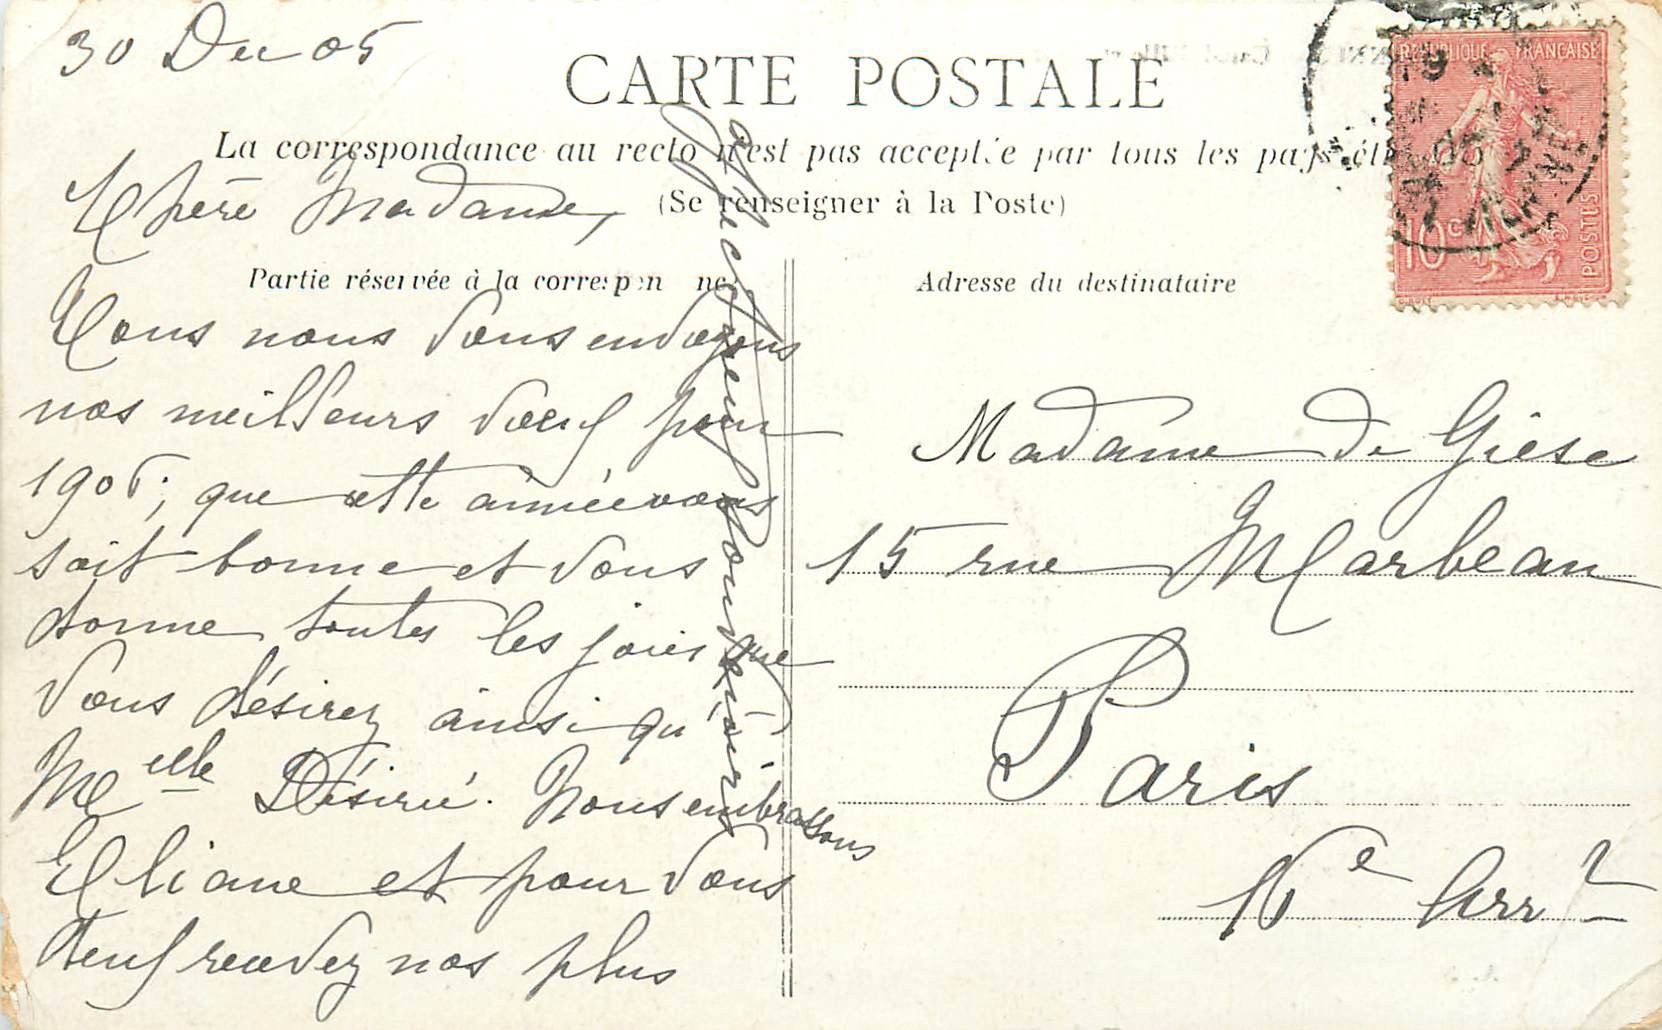 30 Dec 05
CARTE POSTALE
La correspondance au recto n'est pas acceptée par tous les pays ét
(Se renseigner à la Poste)
Chère Madame,
Partie réservée à la correspon ne
Tous nous vous envoyons
nos meilleurs vœux pour
1906; que cette année vous
soit bonne et vous
donne toutes les joies que
vous désirez ainsi qu'à
Melle Désirée. Nous embrassons
Eliane et pour vous
deux recevez nos plus
affectueux souvenirs
Adresse du destinataire
Madame de Gièse
15 rue Marbeau
Paris
16e Arrt
REPUBLIQUE FRANÇAISE
10c
POSTES